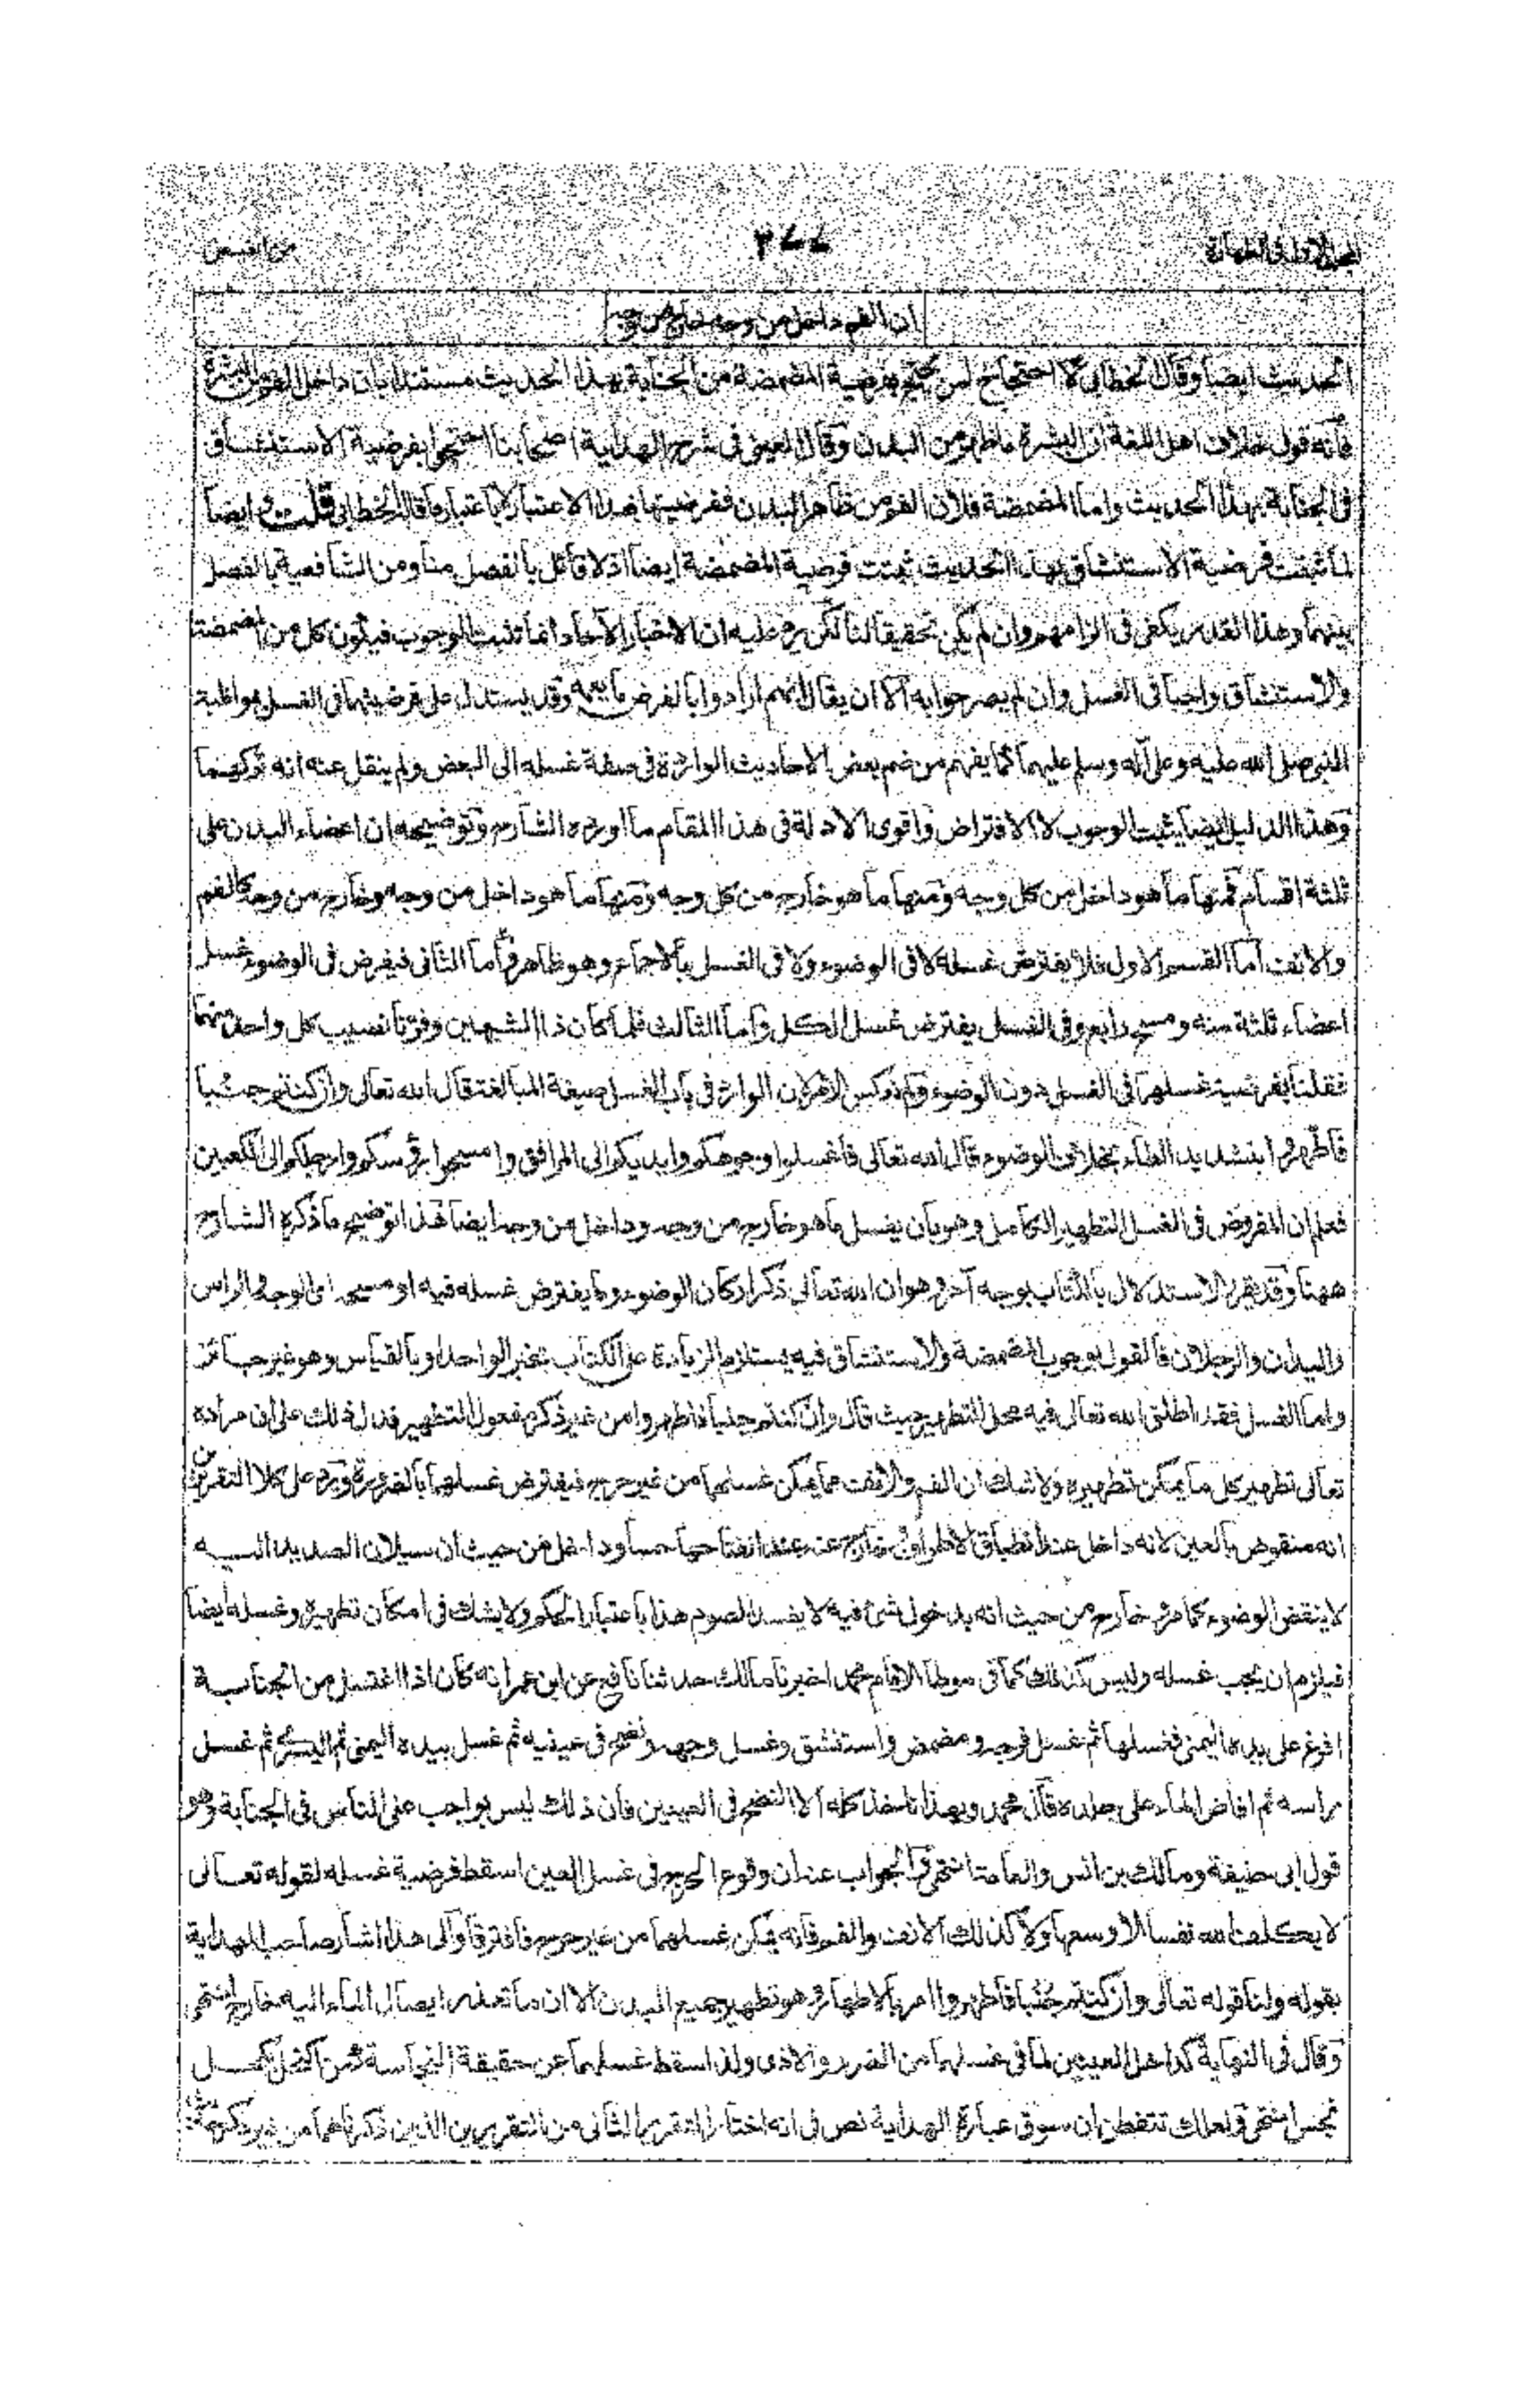 الجزء الاول فى الطهارة
٢٧٧
ان الفم داخل من وجه خارج من وجه
الحديث ايضا وقال الخطابى لا احتجاج لمن يحتج بفرضية المضمضة من الجنابة بهذا الحديث مستندا بان داخل الفم من البشرة
فانه قول خلاف اهل اللغة ان البشرة ما ظهر من البدن وقال العينى فى شرح الهداية اصحابنا احتجوا بفرضية الاستنشاق
فى الجنابة بهذا الحديث واما المضمضة فلان الفم من ظاهر البدن ففرضيتها بهذا الاعتبار لا باعتبار ما قاله الخطابى قلت وايضا
لما ثبتت فرضية الاستنشاق بهذا الحديث ثبتت فرضية المضمضة ايضا اذ لا قائل بالفصل منا ومن الشافعية بالفصل
بينهما وهذا القدر يكفى فى الزامهم وان لم يكن تحقيقا لنا لكن يرد عليه ان الاخبار الآحاد انما تثبت الوجوب فيكون كل من المضمضة
والاستنشاق واجبا فى الغسل وان لم يصر جوابه الا ان يقال انهم ارادوا بالفرض ما يعمه وقد يستدل على فرضيتهما فى الغسل بمواظبة
النبى صلى الله عليه وعلى آله وسلم عليهما كما يفهم من ضم بعض الاحاديث الواردة فى صفة غسله الى البعض ولم ينقل عنه انه تركهما
وهذا الدليل ايضا يثبت الوجوب لا الافتراض واقوى الادلة فى هذا المقام ما اورده الشارح وتوضيحه ان اعضاء البدن على
ثلثة اقسام فمنها ما هو داخل من كل وجه ومنها ما هو خارج من كل وجه ومنها ما هو داخل من وجه وخارج من وجه كالفم
والانف اما القسم الاول فلا يفترض غسله لا فى الوضوء ولا فى الغسل بالاجماع وهو ظاهر واما الثانى فيفرض فى الوضوء غسل
اعضاء ثلثة منه ومسح رابع وفى الغسل يفترض غسل الكل واما الثالث فلما كان ذا الشبهين وفرنا نصيب كل واحد منهما
فقلنا بفرضية غسلهما فى الغسل دون الوضوء ولم نعكس الامر لان الوارد فى باب الغسل صيغة المبالغة قال الله تعالى وان كنتم جنبا
فاطهروا بتشديد الطاء بخلاف الوضوء قال الله تعالى فاغسلوا وجوهكم وايديكم الى المرافق وامسحوا برؤسكم وارجلكم الى الكعبين
فعلم ان المفروض فى الغسل التطهير الكامل وهو بان يغسل ما هو خارج من وجه وداخل من وجه ايضا هذا توضيح ما ذكره الشارح
ههنا وقد يقرر الاستدلال بالكتاب بوجه آخر وهو ان الله تعالى ذكر اركان الوضوء وما يفترض غسله فيه او مسحه اى الوجه والراس
واليدان والرجلان فالقول بوجوب المضمضة والاستنشاق فيه يستلزم الزيادة على الكتاب بخبر الواحد او بالقياس وهو غير جائز
واما الغسل فقد اطلق الله تعالى فيه محل التطهير حيث قال وان كنتم جنبا فاطهروا من غير ذكر مفعول التطهير فدل ذلك على ان مراده
تعالى تطهير كل ما يمكن تطهيره ولا شك ان الفم والانف مما يمكن غسلهما من غير حرج فيفترض غسلهما بالضرورة ويرد على كلا التقريرين
انه منقوض بالعين لانه داخل عند انطباق الاطراف خارج عنه عند انفتاحها حسا وداخل من حيث ان سيلان الصديد اليه
لا ينقض الوضوء كما مر خارج من حيث انه بدخول شئ فيه لا يفسد الصوم هذا باعتبار الحكم ولا يشك فى امكان تطهيره وغسله ايضا
فيلزم ان يجب غسله وليس كذلك كما فى موطا الامام محمد اخبرنا مالك حدثنا نافع عن ابن عمر انه كان اذا اغتسل من الجنابة
افرغ على يده اليمنى فغسلها ثم غسل فرجه ومضمض واستنشق وغسل وجهه ونضح فى عينيه ثم غسل بيده اليمنى ثم اليسرى ثم غسل
راسه ثم افاض الماء على جلده قال محمد وبهذا ناخذ كله الا النضح فى العينين فان ذلك ليس بواجب على الناس فى الجنابة وهو
قول ابى حنيفة ومالك بن انس والعامة انتهى والجواب عنه ان وقوع الحرج فى غسل العين اسقط فرضية غسله لقوله تعالى
لا يكلف الله نفسا الا وسعها ولا كذلك الانف والفم فانه يمكن غسلهما من غير حرج فافترقا والى هذا اشار صاحب الهداية
بقوله ولنا قوله تعالى وان كنتم جنبا فاطهروا امر بالاطهار وهو تطهير جميع البدن الا ان ما تعذر ايصال الماء اليه خارج انتهى
وقال فى النهاية كداخل العينين لما فى غسلهما من الضرر والاذى ولذا سقط غسلهما عن حقيقة النجاسة كمن اكتحل بكحل
نجس انتهى ولعلك تتفطن ان سوق عبارة الهداية نص فى انه اختار التقرير الثانى من التقريرين الذين ذكرناهما من غير ذكر